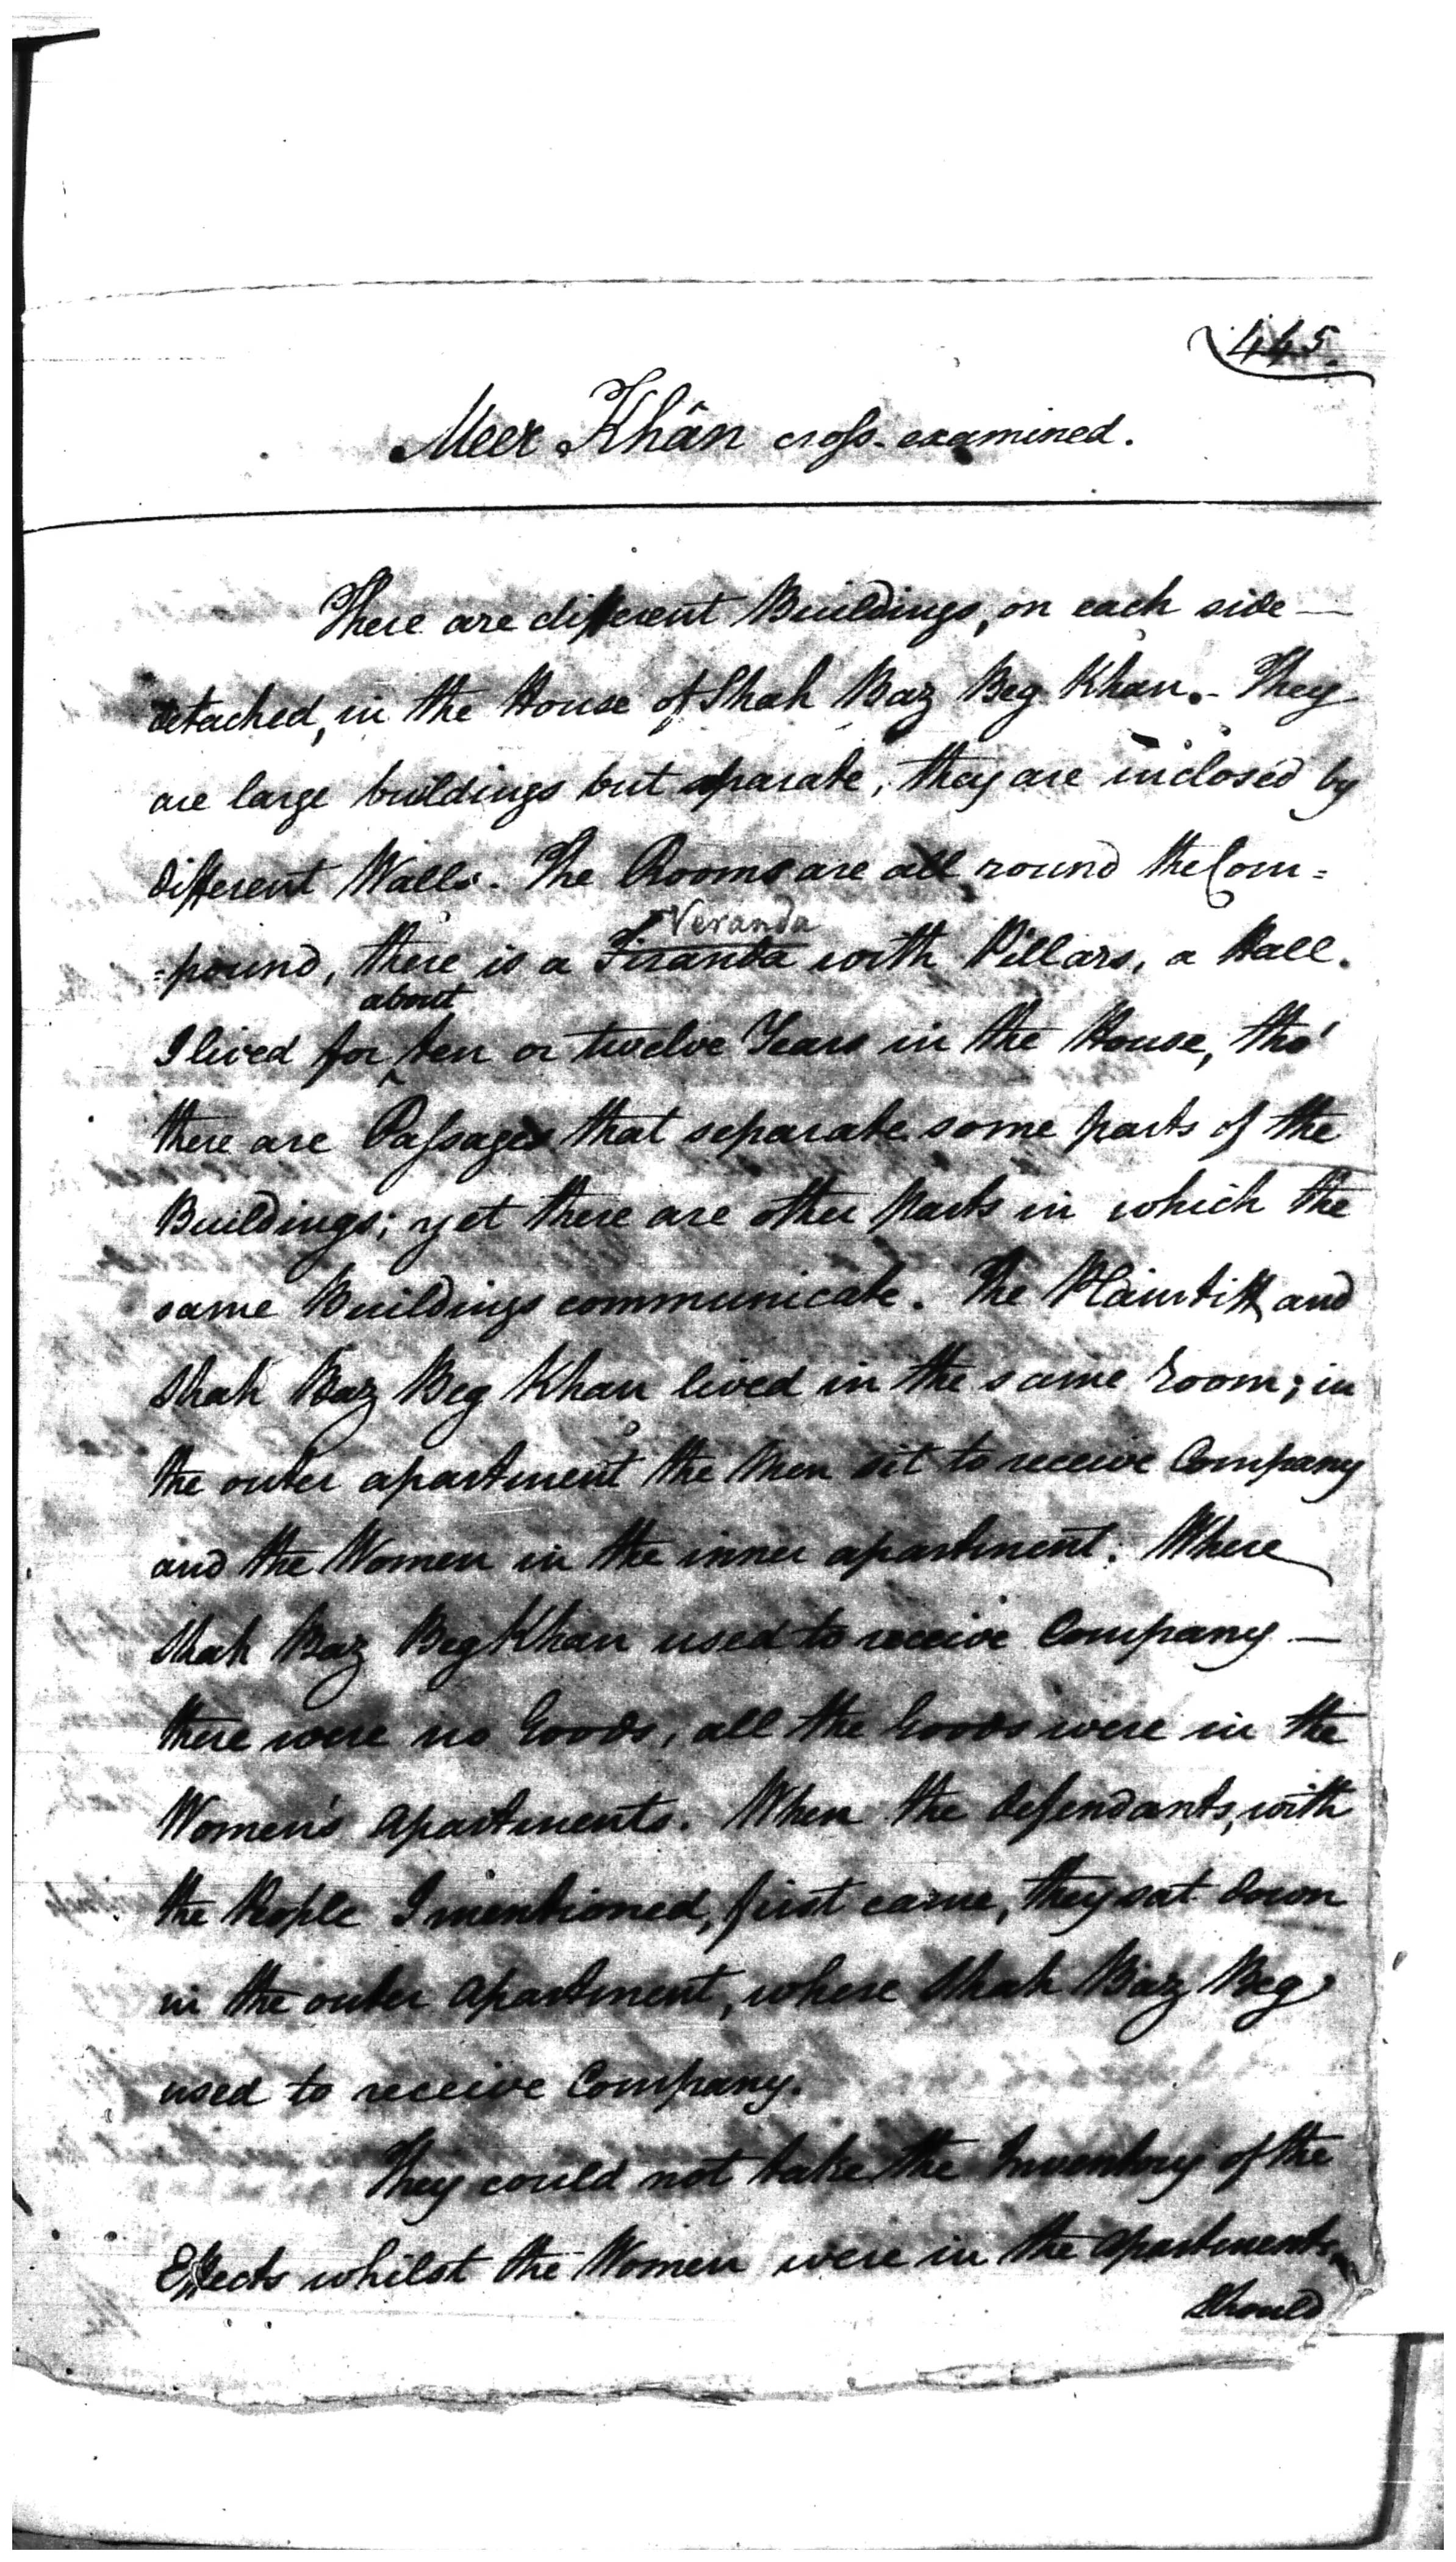 445.
Meer Khân cross-examined.
There are different Buildings, on each side —
detached, in the House of Shah Baz Beg Khan. - They
are large buildings but separate, they are inclosed by
different Walls. The Rooms are all round the Com =
Veranda
=pound, there is a Firanda with Pillars, a Hall.
about
I lived for ^ ten or twelve Years in the House, tho'
there are Passages that separate some parts of the
Buildings; yet there are other parts in which the
same Buildings communicate. The Plaintiff and
Shah Baz Beg Khan lived in the same room; in
the outer apartment the Men sit to receive Company
and the Women in the inner apartment. Where
Shah Baz Beg Khan used to receive Company —
there were no Goods, all the Goods were in the
Women's Apartments. When the defendants, with
the People I mentioned, first came, they sat down
in the outer apartment, where Shah Baz Beg
used to receive Company.
They could not take the Inventory of the
Effects whilst the Women were in the apartments
Should